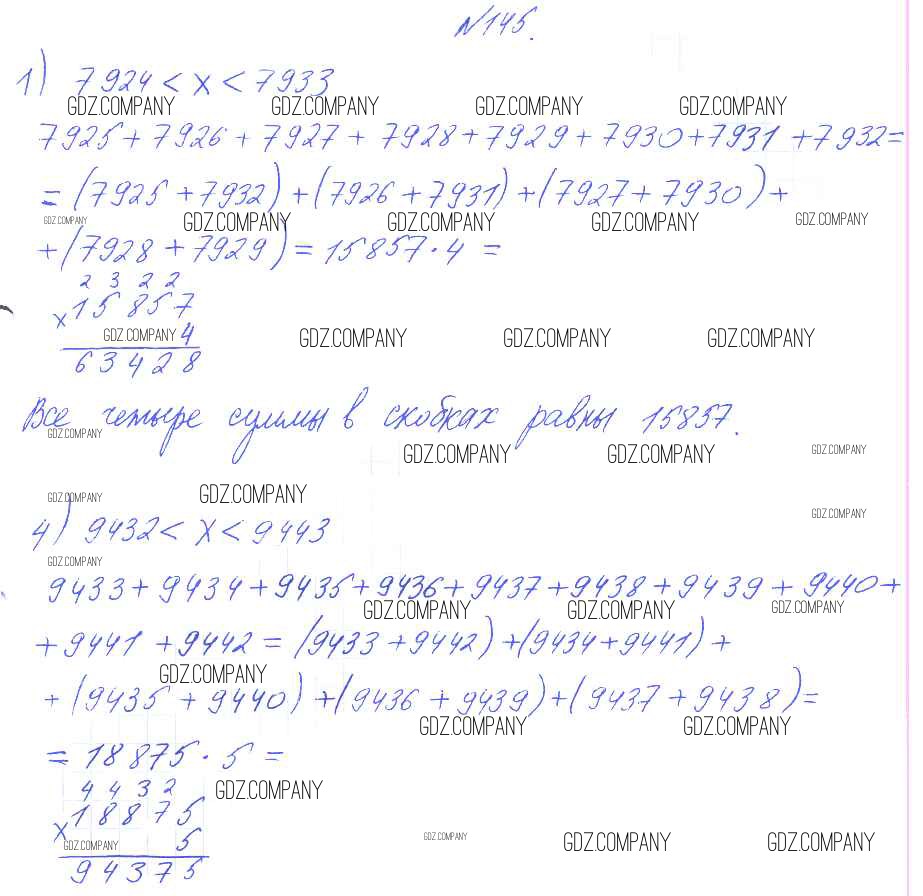 №145.
1) 7924 < x < 7933
GDZ.COMPANY GDZ.COMPANY GDZ.COMPANY GDZ.COMPANY
7925 + 7926 + 7927 + 7928 + 7929 + 7930 + 7931 + 7932 =
= (7925 + 7932) + (7926 + 7931) + (7927 + 7930) +
GDZ.COMPANY GDZ.COMPANY GDZ.COMPANY GDZ.COMPANY GDZ.COMPANY
+ (7928 + 7929) = 15857 · 4 =
2 3 2 2
x 15857
GDZ.COMPANY 4 GDZ.COMPANY GDZ.COMPANY GDZ.COMPANY
63428
Все четыре суммы в скобках равны 15857.
GDZ.COMPANY GDZ.COMPANY GDZ.COMPANY GDZ.COMPANY
GDZ.COMPANY GDZ.COMPANY GDZ.COMPANY
4) 9432 < x < 9443
GDZ.COMPANY
9433 + 9434 + 9435 + 9436 + 9437 + 9438 + 9439 + 9440 +
GDZ.COMPANY GDZ.COMPANY GDZ.COMPANY
+ 9441 + 9442 = (9433 + 9442) + (9434 + 9441) +
GDZ.COMPANY
+ (9435 + 9440) + (9436 + 9439) + (9437 + 9438) =
GDZ.COMPANY GDZ.COMPANY
= 18875 · 5 =
4 4 3 2 GDZ.COMPANY
x 18875
GDZ.COMPANY 5 GDZ.COMPANY GDZ.COMPANY GDZ.COMPANY
94375